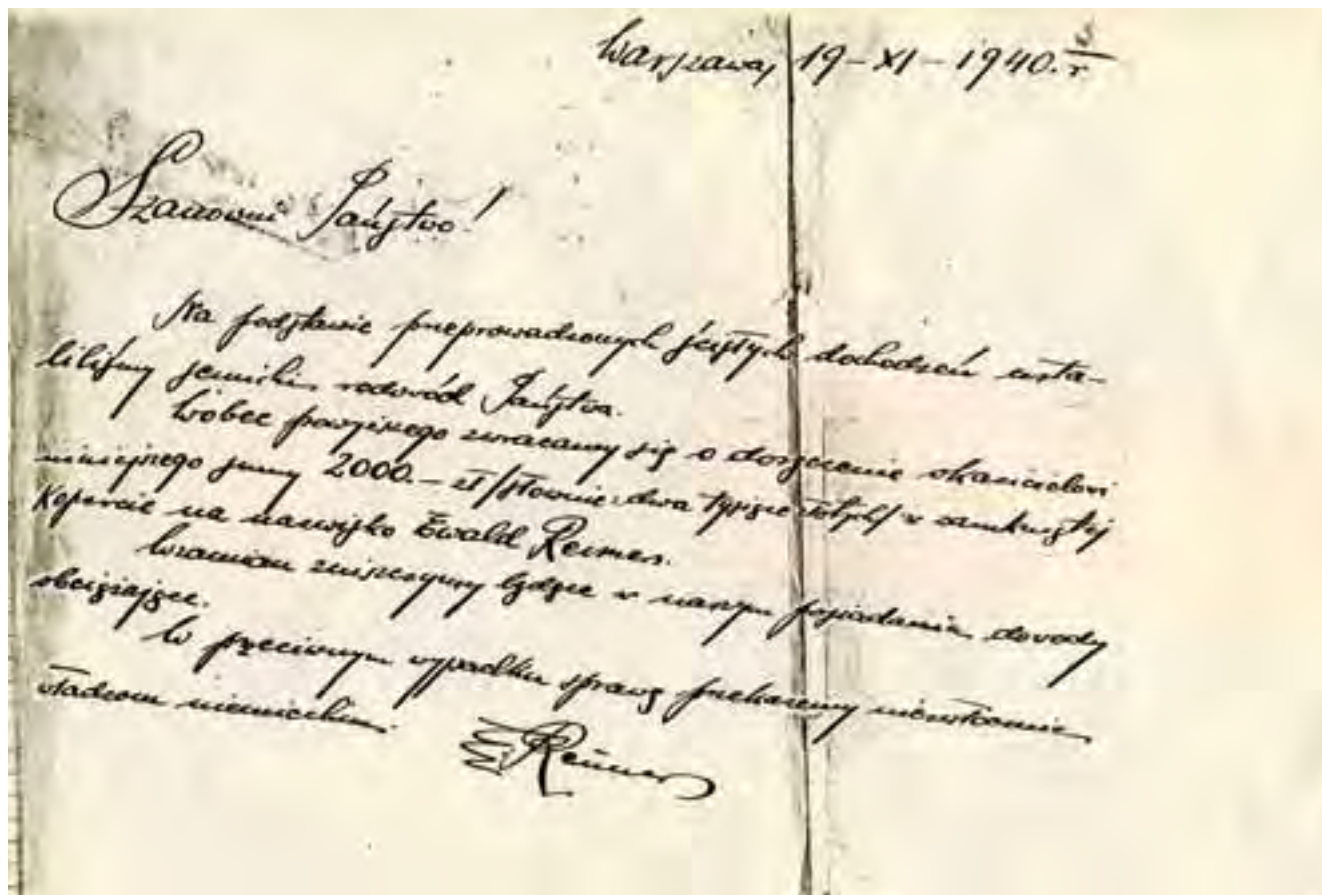 Warszawa, 19-XI-1940. r.
Szanowni Państwo!
Na podstawie przeprowadzonych ścisłych dochodzeń usta-
liliśmy semickie rodowód Państwa.
Wobec powyższego zwracamy się o doręczenie okazicielowi
niniejszego sumy 2000.- zł/słownie: dwa tysiące złotych/ w zamkniętej
kopercie na nazwisko Ewald Reimer.
Wzamian zniszczymy będące w naszym posiadaniu dowody
obciążające.
W przeciwnym wypadku sprawę przekażemy niezwłocznie
władzom niemieckim.
E Reimer